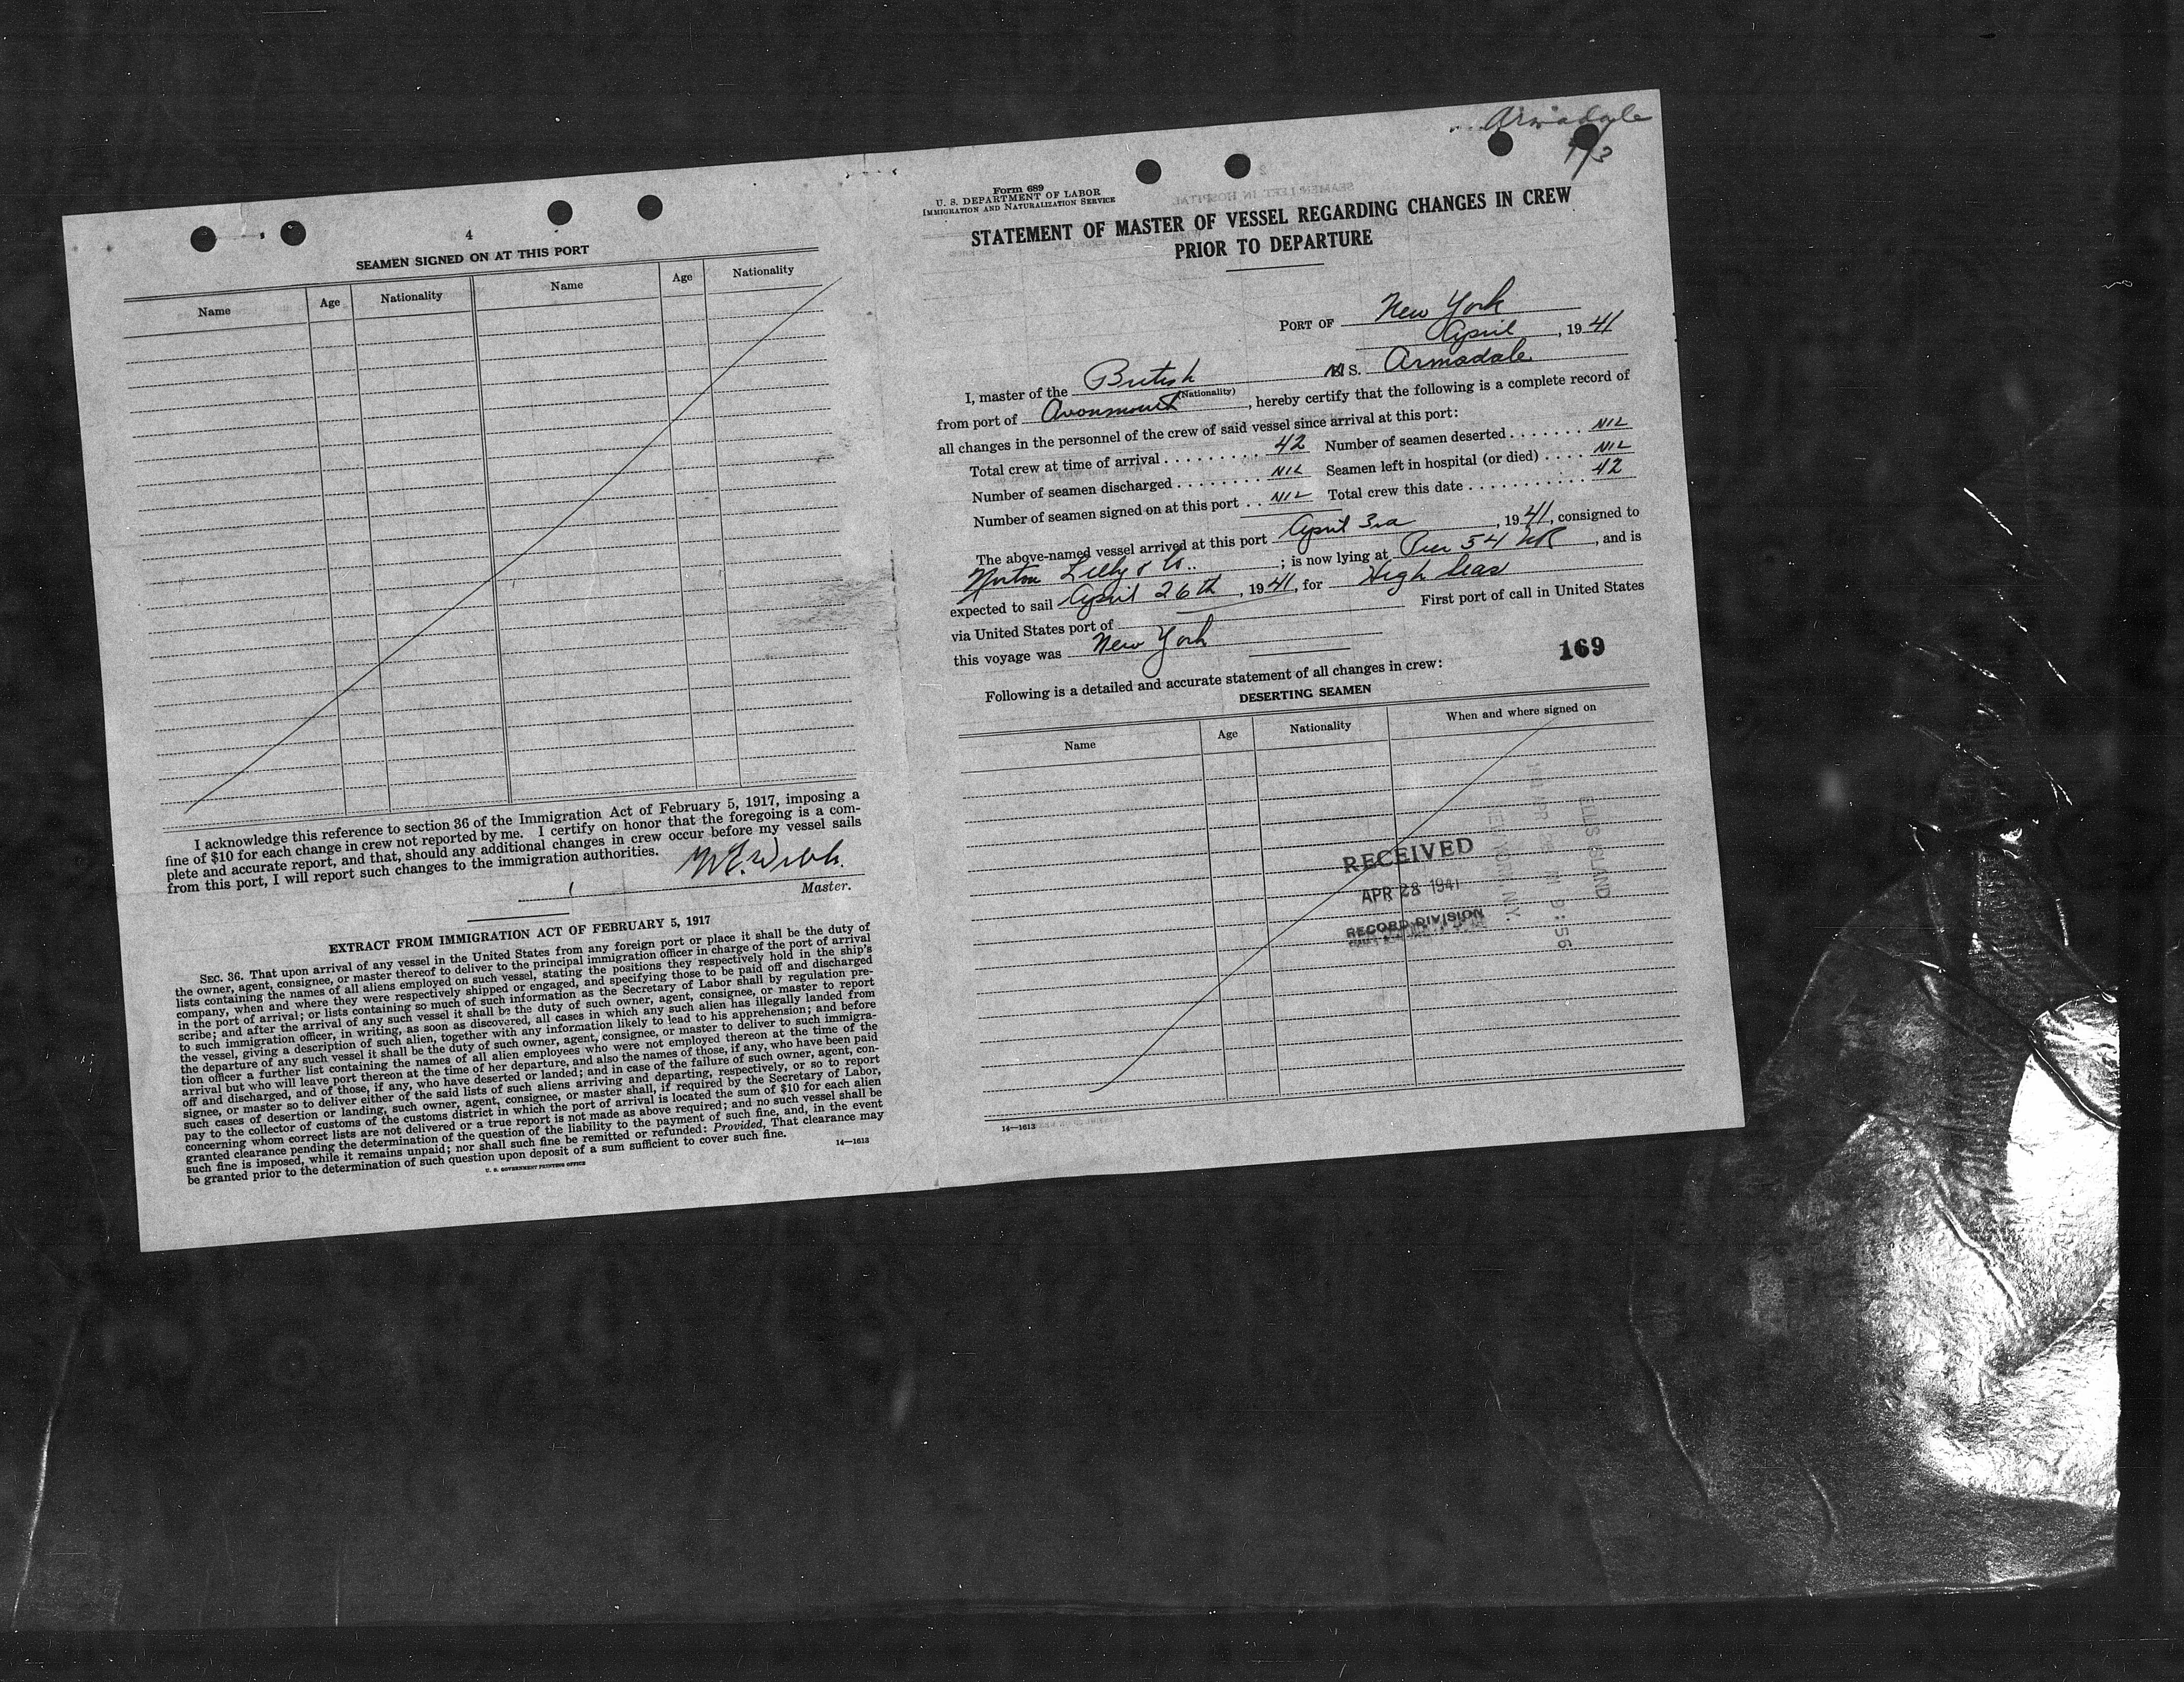 4
SEAMEN SIGNED ON AT THIS PORT
Name Age Nationality Name Age Nationality
I acknowledge this reference to section 36 of the Immigration Act of February 5, 1917, imposing a
fine of $10 for each change in crew not reported by me. I certify on honor that the foregoing is a com-
plete and accurate report, and that, should any additional changes in crew occur before my vessel sails
from this port, I will report such changes to the immigration authorities.
Master.
EXTRACT FROM IMMIGRATION ACT OF FEBRUARY 5, 1917
SEC. 36. That upon arrival of any vessel in the United States from any foreign port or place it shall be the duty of
the owner, agent, consignee, or master thereof to deliver to the principal immigration officer in charge of the port of arrival
lists containing the names of all aliens employed on such vessel, stating the positions they respectively hold in the ship's
company, when and where they were respectively shipped or engaged, and specifying those to be paid off and discharged
in the port of arrival; or lists containing so much of such information as the Secretary of Labor shall by regulation pre-
scribe; and after the arrival of any such vessel it shall be the duty of such owner, agent, consignee, or master to report
to such immigration officer, in writing, as soon as discovered, all cases in which any such alien has illegally landed from
the vessel, giving a description of such alien, together with any information likely to lead to his apprehension; and before
the departure of any such vessel it shall be the duty of such owner, agent, consignee, or master to deliver to such immigra-
tion officer a further list containing the names of all alien employees who were not employed thereon at the time of the
arrival but who will leave port thereon at the time of her departure, and also the names of those, if any, who have been paid
off and discharged, and of those, if any, who have deserted or landed; and in case of the failure of such owner, agent, con-
signee, or master so to deliver either of the said lists of such aliens arriving and departing, respectively, or so to report
such cases of desertion or landing, such owner, agent, consignee, or master shall, if required by the Secretary of Labor,
pay to the collector of customs of the customs district in which the port of arrival is located the sum of $10 for each alien
concerning whom correct lists are not delivered or a true report is not made as above required; and no such vessel shall be
granted clearance pending the determination of the question of the liability to the payment of such fine, and, in the event
such fine is imposed, while it remains unpaid; nor shall such fine be remitted or refunded: Provided, That clearance may
be granted prior to the determination of such question upon deposit of a sum sufficient to cover such fine.
U. S. GOVERNMENT PRINTING OFFICE 14—1613
Armadale
Form 689
U. S. DEPARTMENT OF LABOR
IMMIGRATION AND NATURALIZATION SERVICE
STATEMENT OF MASTER OF VESSEL REGARDING CHANGES IN CREW
PRIOR TO DEPARTURE
PORT OF New York
April, 1941
I, master of the British S. Armadale
(Nationality)
from port of Avonmouth, hereby certify that the following is a complete record of
all changes in the personnel of the crew of said vessel since arrival at this port:
Total crew at time of arrival . . . . . . . . . 42 Number of seamen deserted . . . . . . . NIL
Number of seamen discharged . . . . . . . . NIL Seamen left in hospital (or died) . . . . NIL
Number of seamen signed on at this port . . NIL Total crew this date . . . . . . . . . . . 42
The above-named vessel arrived at this port April 3rd, 1941, consigned to
Norton Lilly & Co..; is now lying at Pier 54 NR, and is
expected to sail April 26th, 1941, for High Seas
via United States port of First port of call in United States
this voyage was New York
169
Following is a detailed and accurate statement of all changes in crew:
DESERTING SEAMEN
Name Age Nationality When and where signed on
RECEIVED
APR 28 1941
RECORD DIVISION
ELLIS ISLAND
9:56
NEW YORK, N.Y.
14—1613